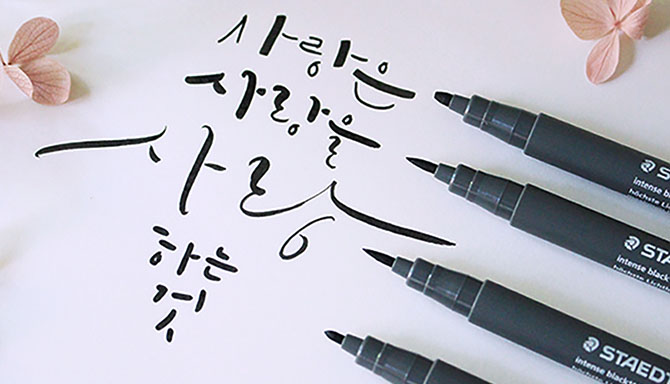 사랑은
사랑을
사랑
하는
것
STAE
intense bla
höchste Lich
STAE
intense black
höchste Licht
STAEDT
intense black